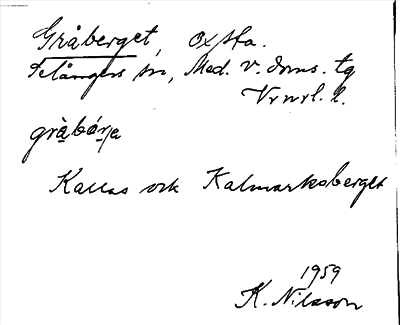 Gråberget, Oxsta.
Selångers sn, Med. v. doms. tg
Vrnrl. l.
gràbár̥ja
Kallas ock Kalmarksberget
1959
K. Nilsson